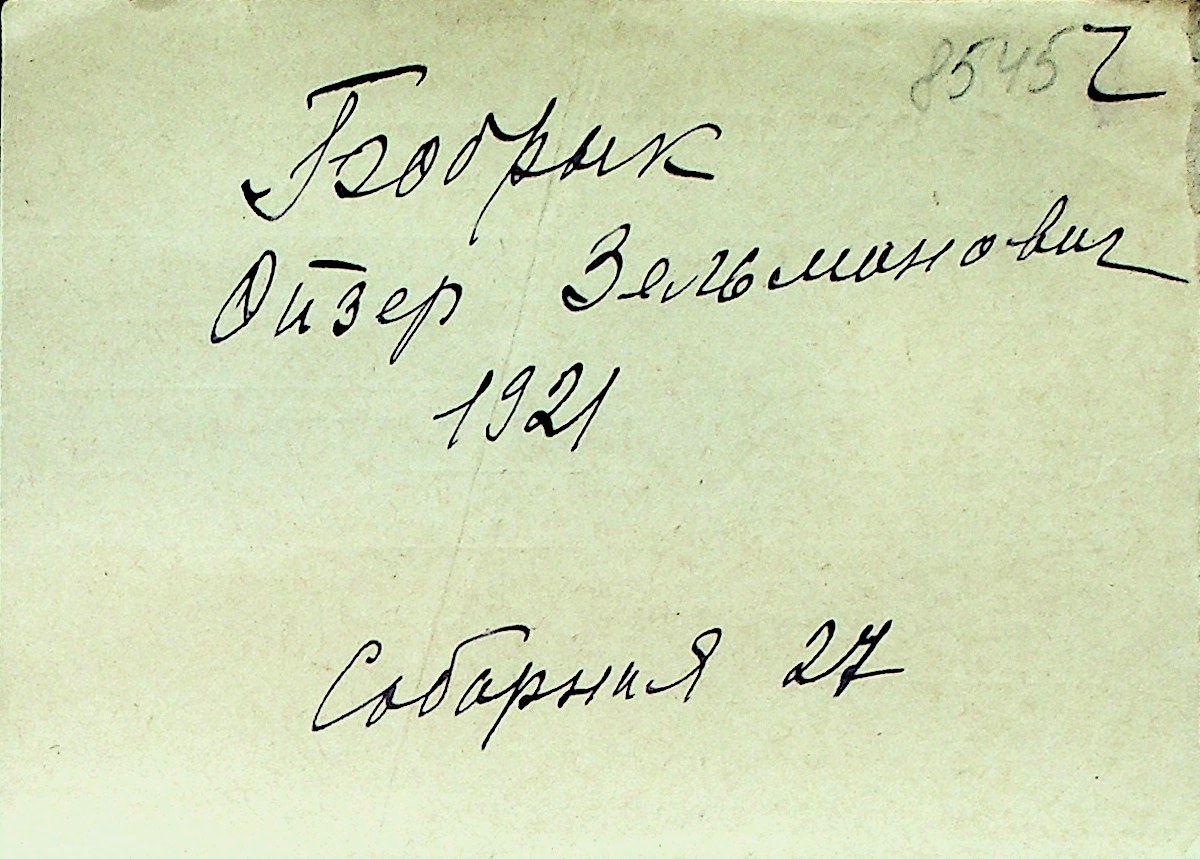 8545 г
Бобрык
Ойзер Зельманович
1921
Соборная 27